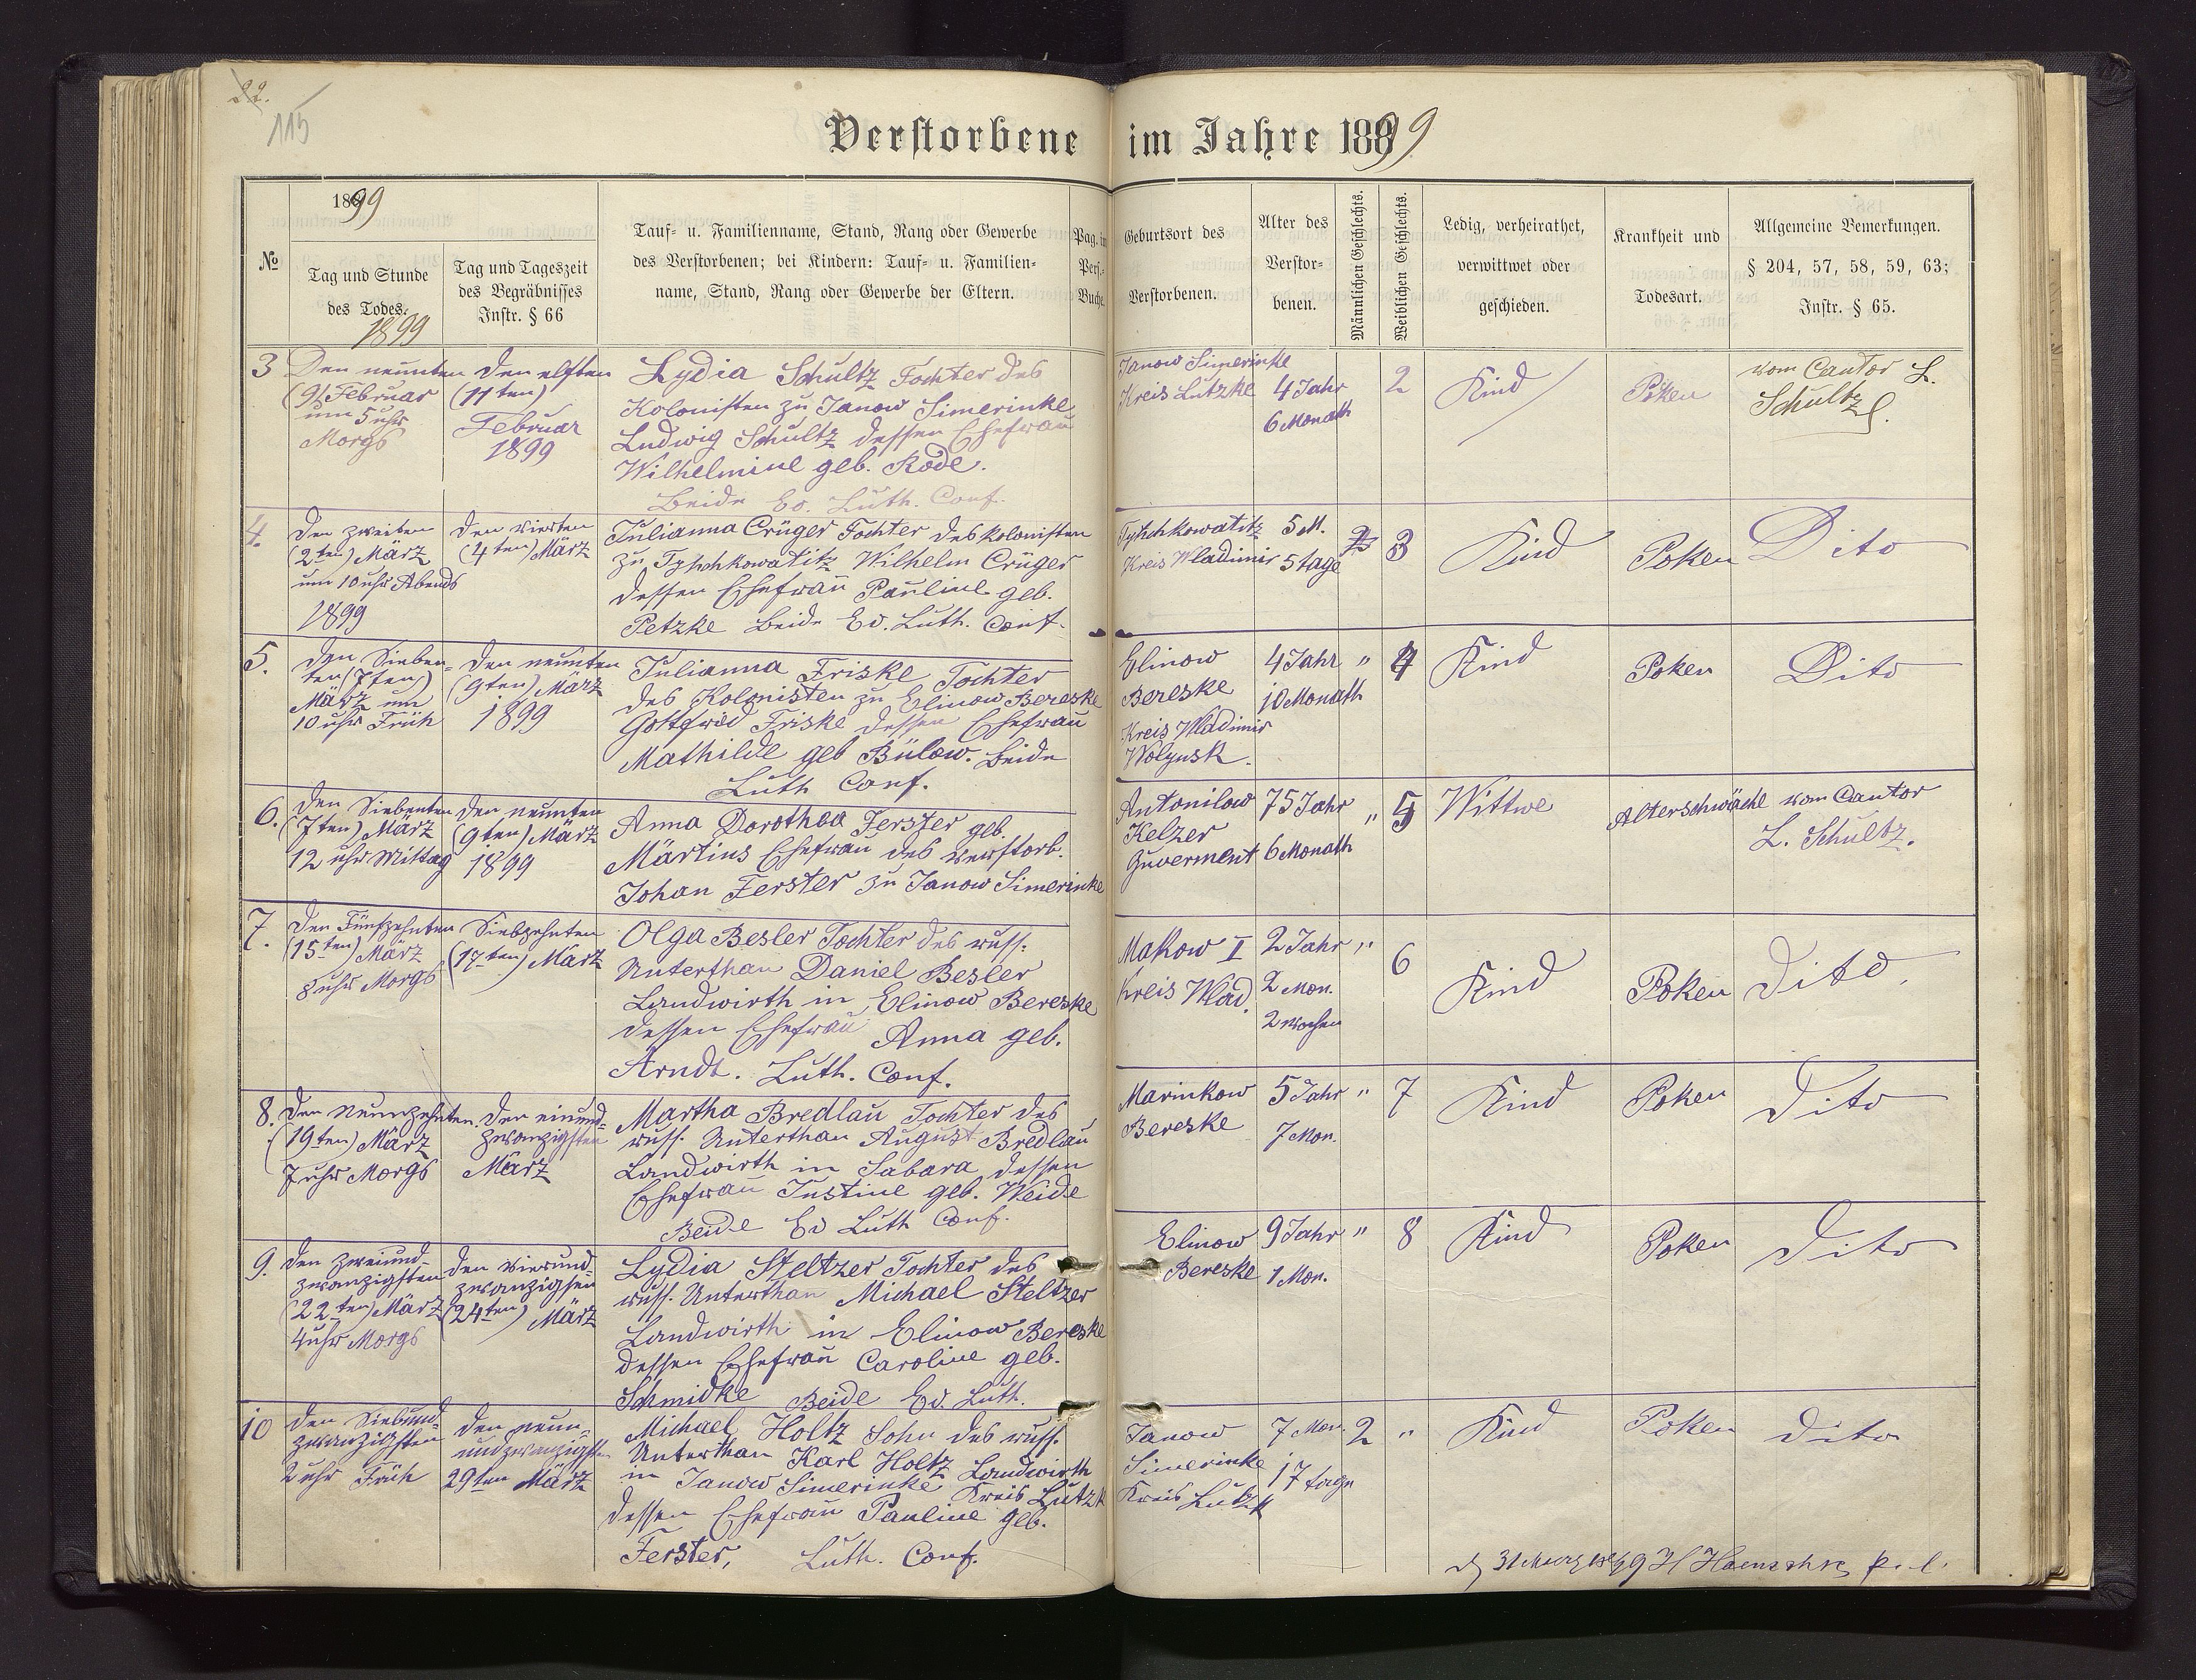 22.
115
Verstorbene im Jahre 1899
№
1899
Tag und Stunde
des Todes.
1899
Tag und Tageszeit
des Begräbnisses
Instr. § 66
Tauf- u. Familienname, Stand, Rang oder Gewerbe
des Verstorbenen; bei Kindern: Tauf- u. Familien-
name, Stand, Rang oder Gewerbe der Eltern.
Pag. im
Pers.-
Buche.
Geburtsort des
Verstorbenen.
Alter des
Verstor-
benen.
Männlichen Geschlechts.
Weiblichen Geschlechts.
Ledig, verheirathet,
verwittwet oder
geschieden.
Krankheit und
Todesart.
Allgemeine Bemerkungen.
§ 204, 57, 58, 59, 63;
Instr. § 65.
3
Den neunten
(9) Februar
um 5 uhr
Morgs
den elften
(11ten)
Februar
1899
Lydia Schultz Tochter des
Kolonisten zu Janow Simerinke
Ludwig Schultz dessen Ehefrau
Wilhelmine geb. Rode.
Beide Ev. Luth. Conf.
Janow Simerinke
Kreis Lutzke
4 Jahr
6 Monath
2
Kind
Poken
vom Cantor L.
Schultz
4.
den zweiten
(2ten) März
um 10 uhr Abends
1899
den vierten
(4ten) März
Julianna Crüger Tochter des Kolonisten
zu Tyschkowatitz Wilhelm Crüger
dessen Ehefrau Pauline geb.
Petzke Beide Ev. Luth. Conf.
Tyschkowatitz
Kreis Wladimir
5 M.
5 tage
3
Kind
Poken
Dito
5.
den Sieben-
ten (7ten)
März um
10 uhr Früh
den neunten
(9ten) März
1899
Julianna Friske Tochter
des Kolonisten zu Elinow Bereske
Gottfried Friske dessen Ehefrau
Mathilde geb Bülow. beide
Luth Conf.
Elinow
Bereske
Kreis Wladimir
Wolynsk.
4 Jahr
10 Monath
"
4
Kind
Poken
Dito
6.
den Siebenten
(7ten) März
12 uhr Mittag
den neunten
(9ten) März
1899
Anna Dorothea Ferster geb.
Märtins Ehefrau des verstorb.
Johan Ferster zu Janow Simerinke
Antonilow
Kelzer
Guverment
75 Jahr
6 Monath
"
5
Wittwe
Alterschwäche
vom Cantor
L. Schultz.
7.
den Fünfzehnten
(15ten) März
8 uhr Morgs
Siebzehnten
(17ten) März
Olga Besler Tochter des russ.
Unterthan Daniel Besler
Landwirth in Elinow Bereske
dessen Ehefrau Anna geb.
Arndt. Luth. Conf.
Makow I
Kreis Wlad.
2 Jahr
2 Mon.
2 wochen
"
6
Kind
Poken
Dito.
8.
den Neunzehnten
(19ten) März
7 uhr Morgs
den einund-
zwanzigsten
März
Martha Bredlau Tochter des
russ. Unterthan August Bredlau
Landwirth in Sabara dessen
Ehefrau Justine geb. Weide
Beide Ev Luth Conf.
Marinkow
Bereske
5 Jahr
7 Mon.
"
7
Kind
Poken
Dito
9.
den zweiund-
zwanzigsten
(22ten) März
4 uhr Morgs
den vierund-
zwanzigsten
(24ten) März
Lydia Steltzer Tochter des
russ. Unterthan Michael Steltzer
Landwirth in Elinow Bereske
dessen Ehefrau Caroline geb.
Schmidke Beide Ev. Luth.
Elinow
Bereske
9 Jahr
1 Mon.
"
8
Kind
Poken
Dito
10
den Siebund-
zwanzigsten
2 uhr Früh
den neun-
undzwanzigsten
29ten März
Michael Holtz Sohn des russ.
Unterthan Karl Holtz Landwirth
in Janow Simerinke Kreis Lutzk
dessen Ehefrau Pauline geb.
Ferster, Luth. Conf.
Janow
Simerinke
Kreis Lutzk
7 Mon.
17 tage
2
"
Kind
Poken
Dito
31 Maerz 1899 H